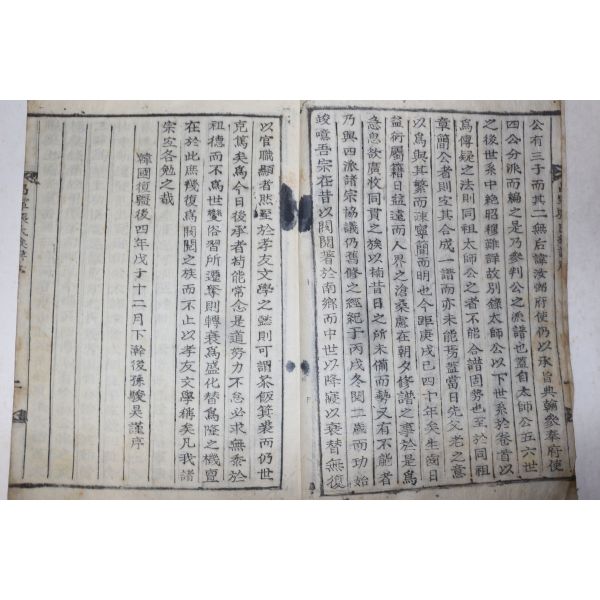 公有三子而其二無后諱汝弼府使仍以承旨典翰參奉府使
四公分派而編之是乃參判公之派譜也蓋自太師公五六世
之後世系中絶昭穆難詳故別錄太師公以下世系於卷首以
爲傳疑之法則同祖太師公之者不能合譜固勢也至於同祖
章簡公者則宜其合成一譜而亦未能焉蓋當日先父老之意
以爲與其繁而疎寧簡而明也今距庚戌已四十年矣生齒日
益衍屬籍日益遠而人界之滄桑慮在朝夕修譜之事於是爲
急息欲廣收同貫之族以補昔日之所未備而勢又有不能者
乃興四派諸宗協議仍舊修之經紀于丙戌冬閱二歲而功始
竣噫吾宗在昔以閥閱著於南鄕而中世以降寢以衰替無復
以官職顯者然至於孝友文學之懿則可謂茶飯箕裘而仍世
克篤矣爲今日後承者苟能常念是道努力不怠必求無忝於
祖德而不爲世變俗習所遷奪則轉衰爲盛化替爲隆之機亶
在於此庶幾復爲閥閱之族而不止以孝友文學稱矣凡我諸
宗宜各勉之哉
韓國復職後四年戊子十二月下澣後孫駿昊謹序